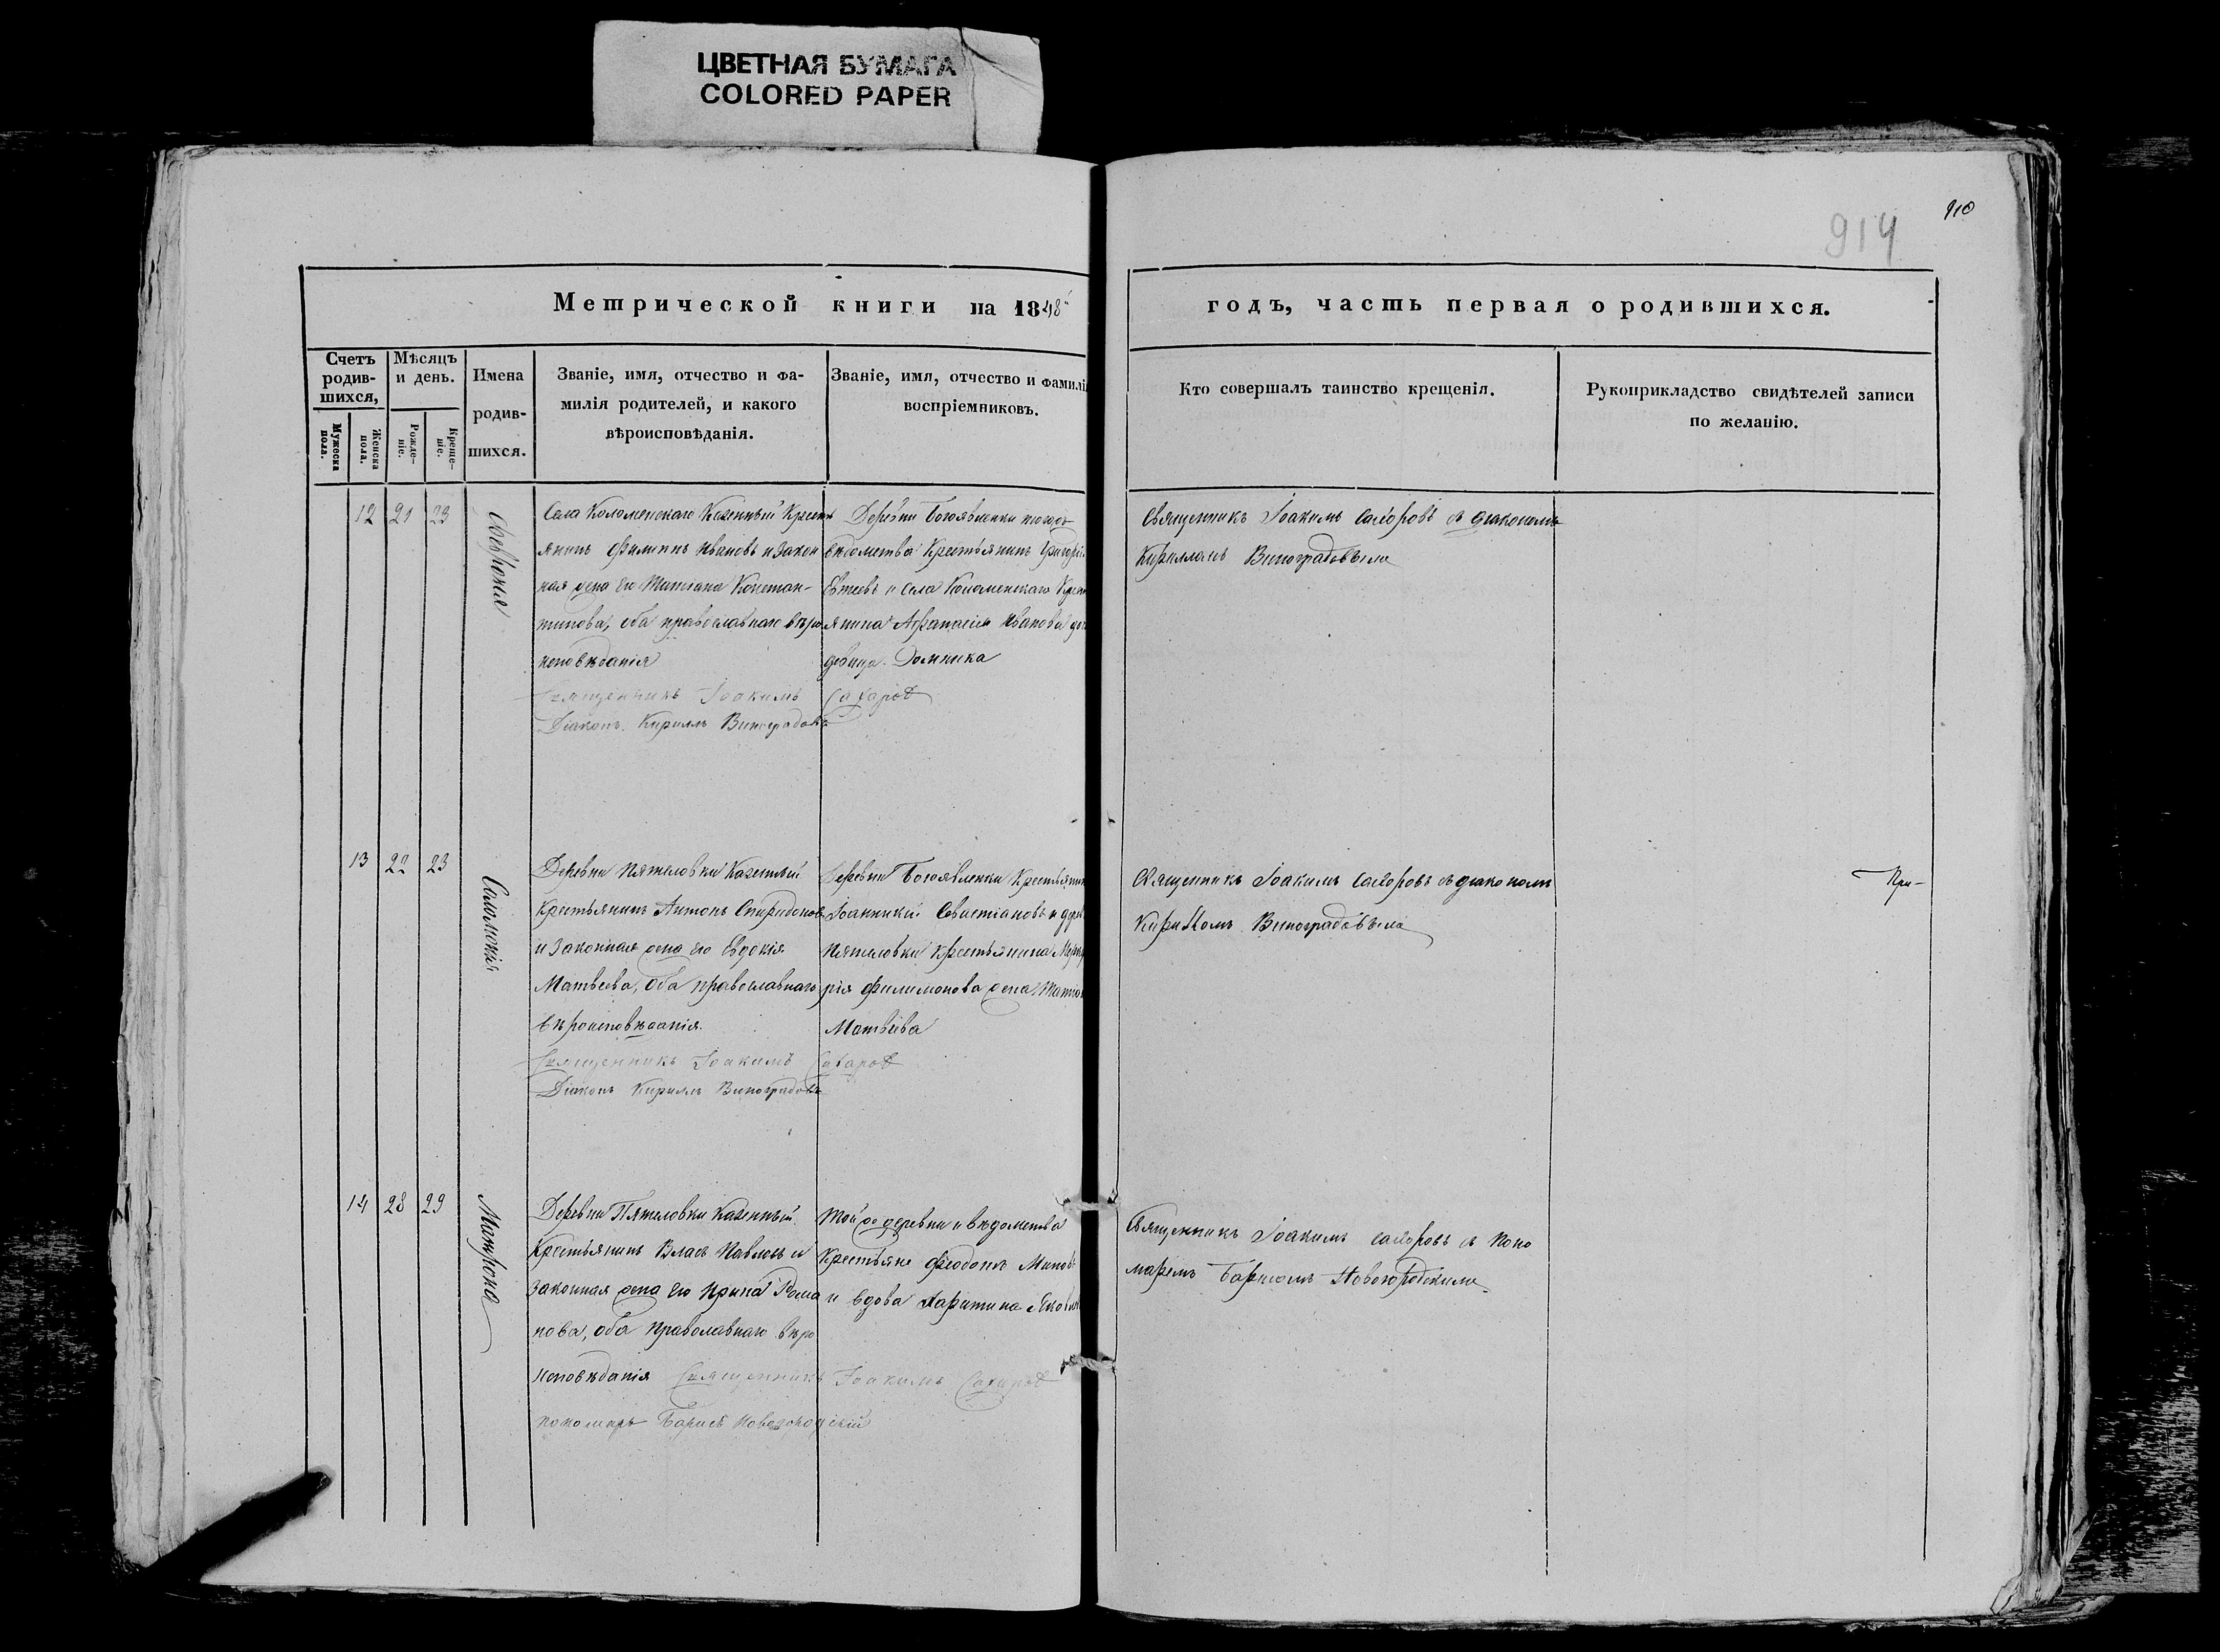 ЦВЕТНАЯ БУМАГА
COLORED PAPER
910
914
Метрической книги на 1848й
годъ, часть первая о родившихся.
Счетъ родив-шихся,
Мужеска пола.
Женска пола.
Мѣсяцъ и день.
Рожде-ніе.
Креще-ніе.
Имена
родив-
шихся.
Званіе, имя, отчество и фа-
милія родителей, и какого
вѣроисповѣданія.
Званіе, имя, отчество и фамилія
воспріемниковъ.
Кто совершалъ таинство крещенія.
Рукоприкладство свидѣтелей записи
по желанію.
12 21 23
Села Коломенскаго Казенный Кресть
янинъ Филиппъ Ивановъ и закон
ная жена его Татіана Констан-
тинова, оба православнаго вѣро
исповѣданія
Священникъ Іоакимъ Сахаровъ
Діаконъ Кириллъ Виноградовъ
Деревни Богоявленки тогоже
вѣдомства Крестьянинъ Григорій
и села Коломенскаго Крест
янина Афанасія Иванова
девица Домника
Священникъ Іоакимъ Сахаровъ съ діакономъ
Кириллом Виноградовымъ
13 22 23
Соломонія
Деревни Пяшеловки Казенный
Крестьянинъ Антонъ Спиридоновъ
и законная жена его Евдокія
Матвѣева, оба православнаго
вѣроисповѣданія.
Священникъ Іоакимъ Сахаровъ
Діаконъ Кириллъ Виноградовъ
Деревни Богоявленки Крестьянинъ
Іоанникій Севастіановъ и
Пяшеловки Крестьянина
рія Филимонова жена
Матвѣева
Священникъ Іоакимъ Сахаровъ съ діакономъ
Кирилломъ Виноградовымъ
При-
14 28 29
Матрона
Деревни Пяшеловки Казенный
Крестьянинъ Власъ Павловъ и
законная жена его Ирина Рома
нова, оба православнаго вѣро
исповѣданія Священникъ Іоакимъ Сахаровъ
пономарь Борисъ Новогородскій
Той же деревни и вѣдомства
Крестьяне Ѳеодотъ Миновъ
и вдова Харитина Яковлева
Священникъ Іоакимъ Сахаровъ съ Поно
маремъ Борисомъ Новогородскимъ